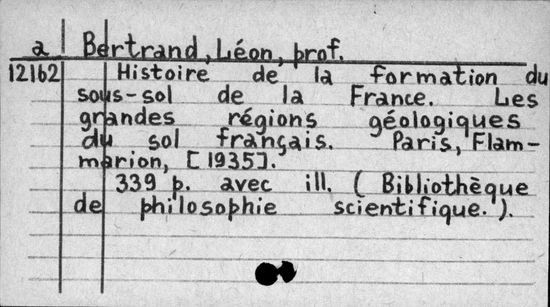 a Bertrand, Léon, prof.
12162 Histoire de la formation du
sous-sol de la France. Les
grandes régions géologiques
du sol français. Paris, Flam-
marion, [1935].
339 p. avec ill. (Bibliothèque
de philosophie scientifique.).